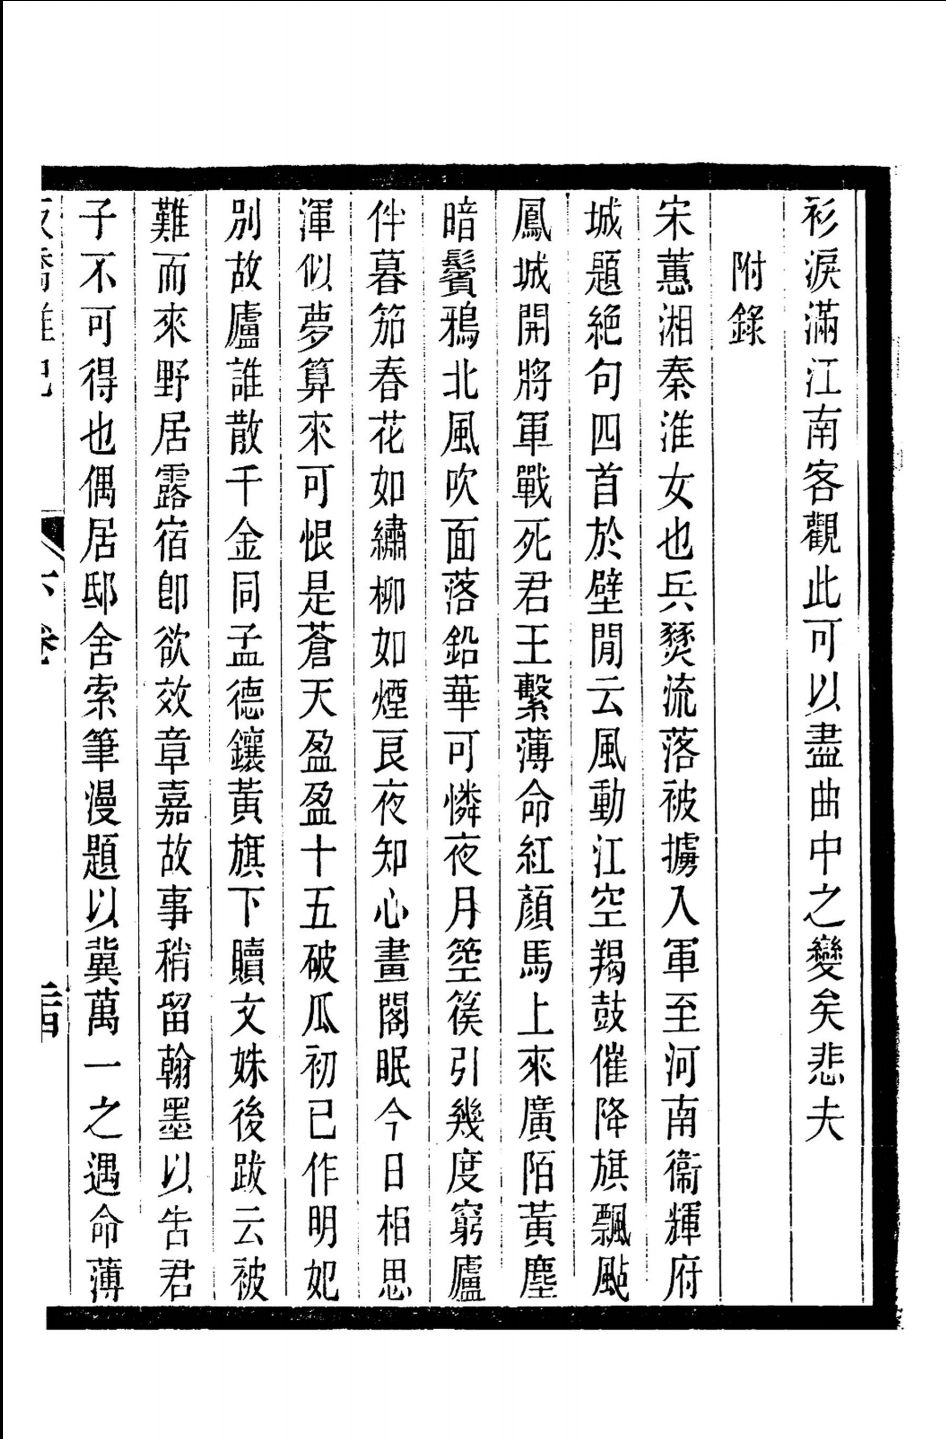 衫淚滿江南客觀此可以盡曲中之變矣悲夫
附錄
宋蕙湘秦淮女也兵燹流落被擄入軍至河南衞輝府
城題絕句四首於壁閒云風動江空羯鼓催降旗飄颭
鳳城開將軍戰死君王繫薄命紅顏馬上來廣陌黃塵
暗鬢鴉北風吹面落鉛華可憐夜月箜篌引幾度穹廬
伴暮笳春花如繡柳如煙良夜知心畫閣眠今日相思
渾似夢算來可恨是蒼天盈盈十五破瓜初已作明妃
別故廬誰散千金同孟德鑲黃旗下贖文姝後跋云被
難而來野居露宿卽欲效章嘉故事稍留翰墨以告君
子不可得也偶居邸舍索筆漫題以冀萬一之遇命薄
板橋雜記 下卷 二四